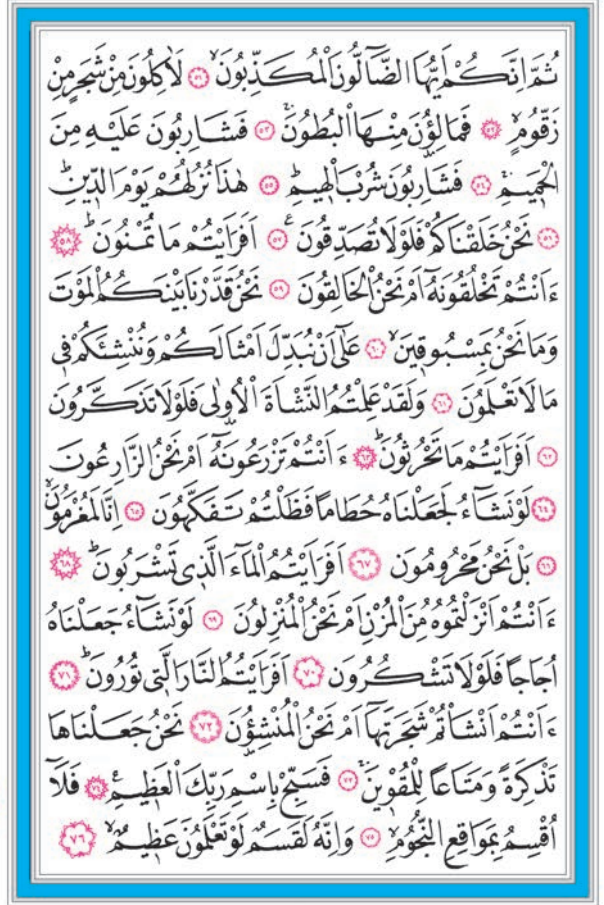 ثُمَّ اِنَّكُمْ اَيُّهَا الضَّٓالُّونَ الْمُكَذِّبُونَۙ ﴿٥١﴾ لَاٰكِلُونَ مِنْ شَجَرٍ مِنْ
زَقُّومٍۙ ﴿٥٢﴾ فَمَالِؤُ۫نَ مِنْهَا الْبُطُونَۚ ﴿٥٣﴾ فَشَارِبُونَ عَلَيْهِ مِنَ
الْحَم۪يمِۚ ﴿٥٤﴾ فَشَارِبُونَ شُرْبَ الْه۪يمِۜ ﴿٥٥﴾ هٰذَا نُزُلُهُمْ يَوْمَ الدّ۪ينِۜ
﴿٥٦﴾ نَحْنُ خَلَقْنَاكُمْ فَلَوْلَا تُصَدِّقُونَ ﴿٥٧﴾ اَفَرَاَيْتُمْ مَا تُمْنُونَۜ ﴿٥٨﴾
ءَاَنْتُمْ تَخْلُقُونَهُٓ اَمْ نَحْنُ الْخَالِقُونَ ﴿٥٩﴾ نَحْنُ قَدَّرْنَا بَيْنَكُمُ الْمَوْتَ
وَمَا نَحْنُ بِمَسْبُوق۪ينَۙ ﴿٦٠﴾ عَلٰٓى اَنْ نُبَدِّلَ اَمْثَالَكُمْ وَنُنْشِئَكُمْ ف۪ي
مَا لَا تَعْلَمُونَ ﴿٦١﴾ وَلَقَدْ عَلِمْتُمُ النَّشْاَةَ الْاُو۫لٰى فَلَوْلَا تَذَكَّرُونَ
﴿٦٢﴾ اَفَرَاَيْتُمْ مَا تَحْرُثُونَۜ ﴿٦٣﴾ ءَاَنْتُمْ تَزْرَعُونَهُٓ اَمْ نَحْنُ الزَّارِعُونَ
﴿٦٤﴾ لَوْ نَشَٓاءُ لَجَعَلْنَاهُ حُطَامًا فَظَلْتُمْ تَفَكَّهُونَ ﴿٦٥﴾ اِنَّا لَمُغْرَمُونَۙ
﴿٦٦﴾ بَلْ نَحْنُ مَحْرُومُونَ ﴿٦٧﴾ اَفَرَاَيْتُمُ الْمَٓاءَ الَّذ۪ي تَشْرَبُونَۜ ﴿٦٨﴾
ءَاَنْتُمْ اَنْزَلْتُمُوهُ مِنَ الْمُزْنِ اَمْ نَحْنُ الْمُنْزِلُونَ ﴿٦٩﴾ لَوْ نَشَٓاءُ جَعَلْنَاهُ
اُجَاجًا فَلَوْلَا تَشْكُرُونَ ﴿٧٠﴾ اَفَرَاَيْتُمُ النَّارَ الَّت۪ي تُورُونَۜ ﴿٧١﴾
ءَاَنْتُمْ اَنْشَاْتُمْ شَجَرَتَهَٓا اَمْ نَحْنُ الْمُنْشِؤُ۫نَ ﴿٧٢﴾ نَحْنُ جَعَلْنَاهَا
تَذْكِرَةً وَمَتَاعًا لِلْمُقْو۪ينَۚ ﴿٧٣﴾ فَسَبِّحْ بِاسْمِ رَبِّكَ الْعَظ۪يمِ ﴿٧٤﴾ فَلَٓا
اُقْسِمُ بِمَوَاقِعِ النُّجُومِۙ ﴿٧٥﴾ وَاِنَّهُ لَقَسَمٌ لَوْ تَعْلَمُونَ عَظ۪يمٌۙ ﴿٧٦﴾